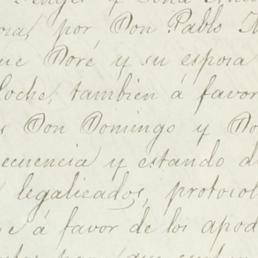 por Don Pablo
Doré y su esposa
loche, también á favor
Don Domingo y
ecuencia y estando
legalizados, protocol
á favor de los apod